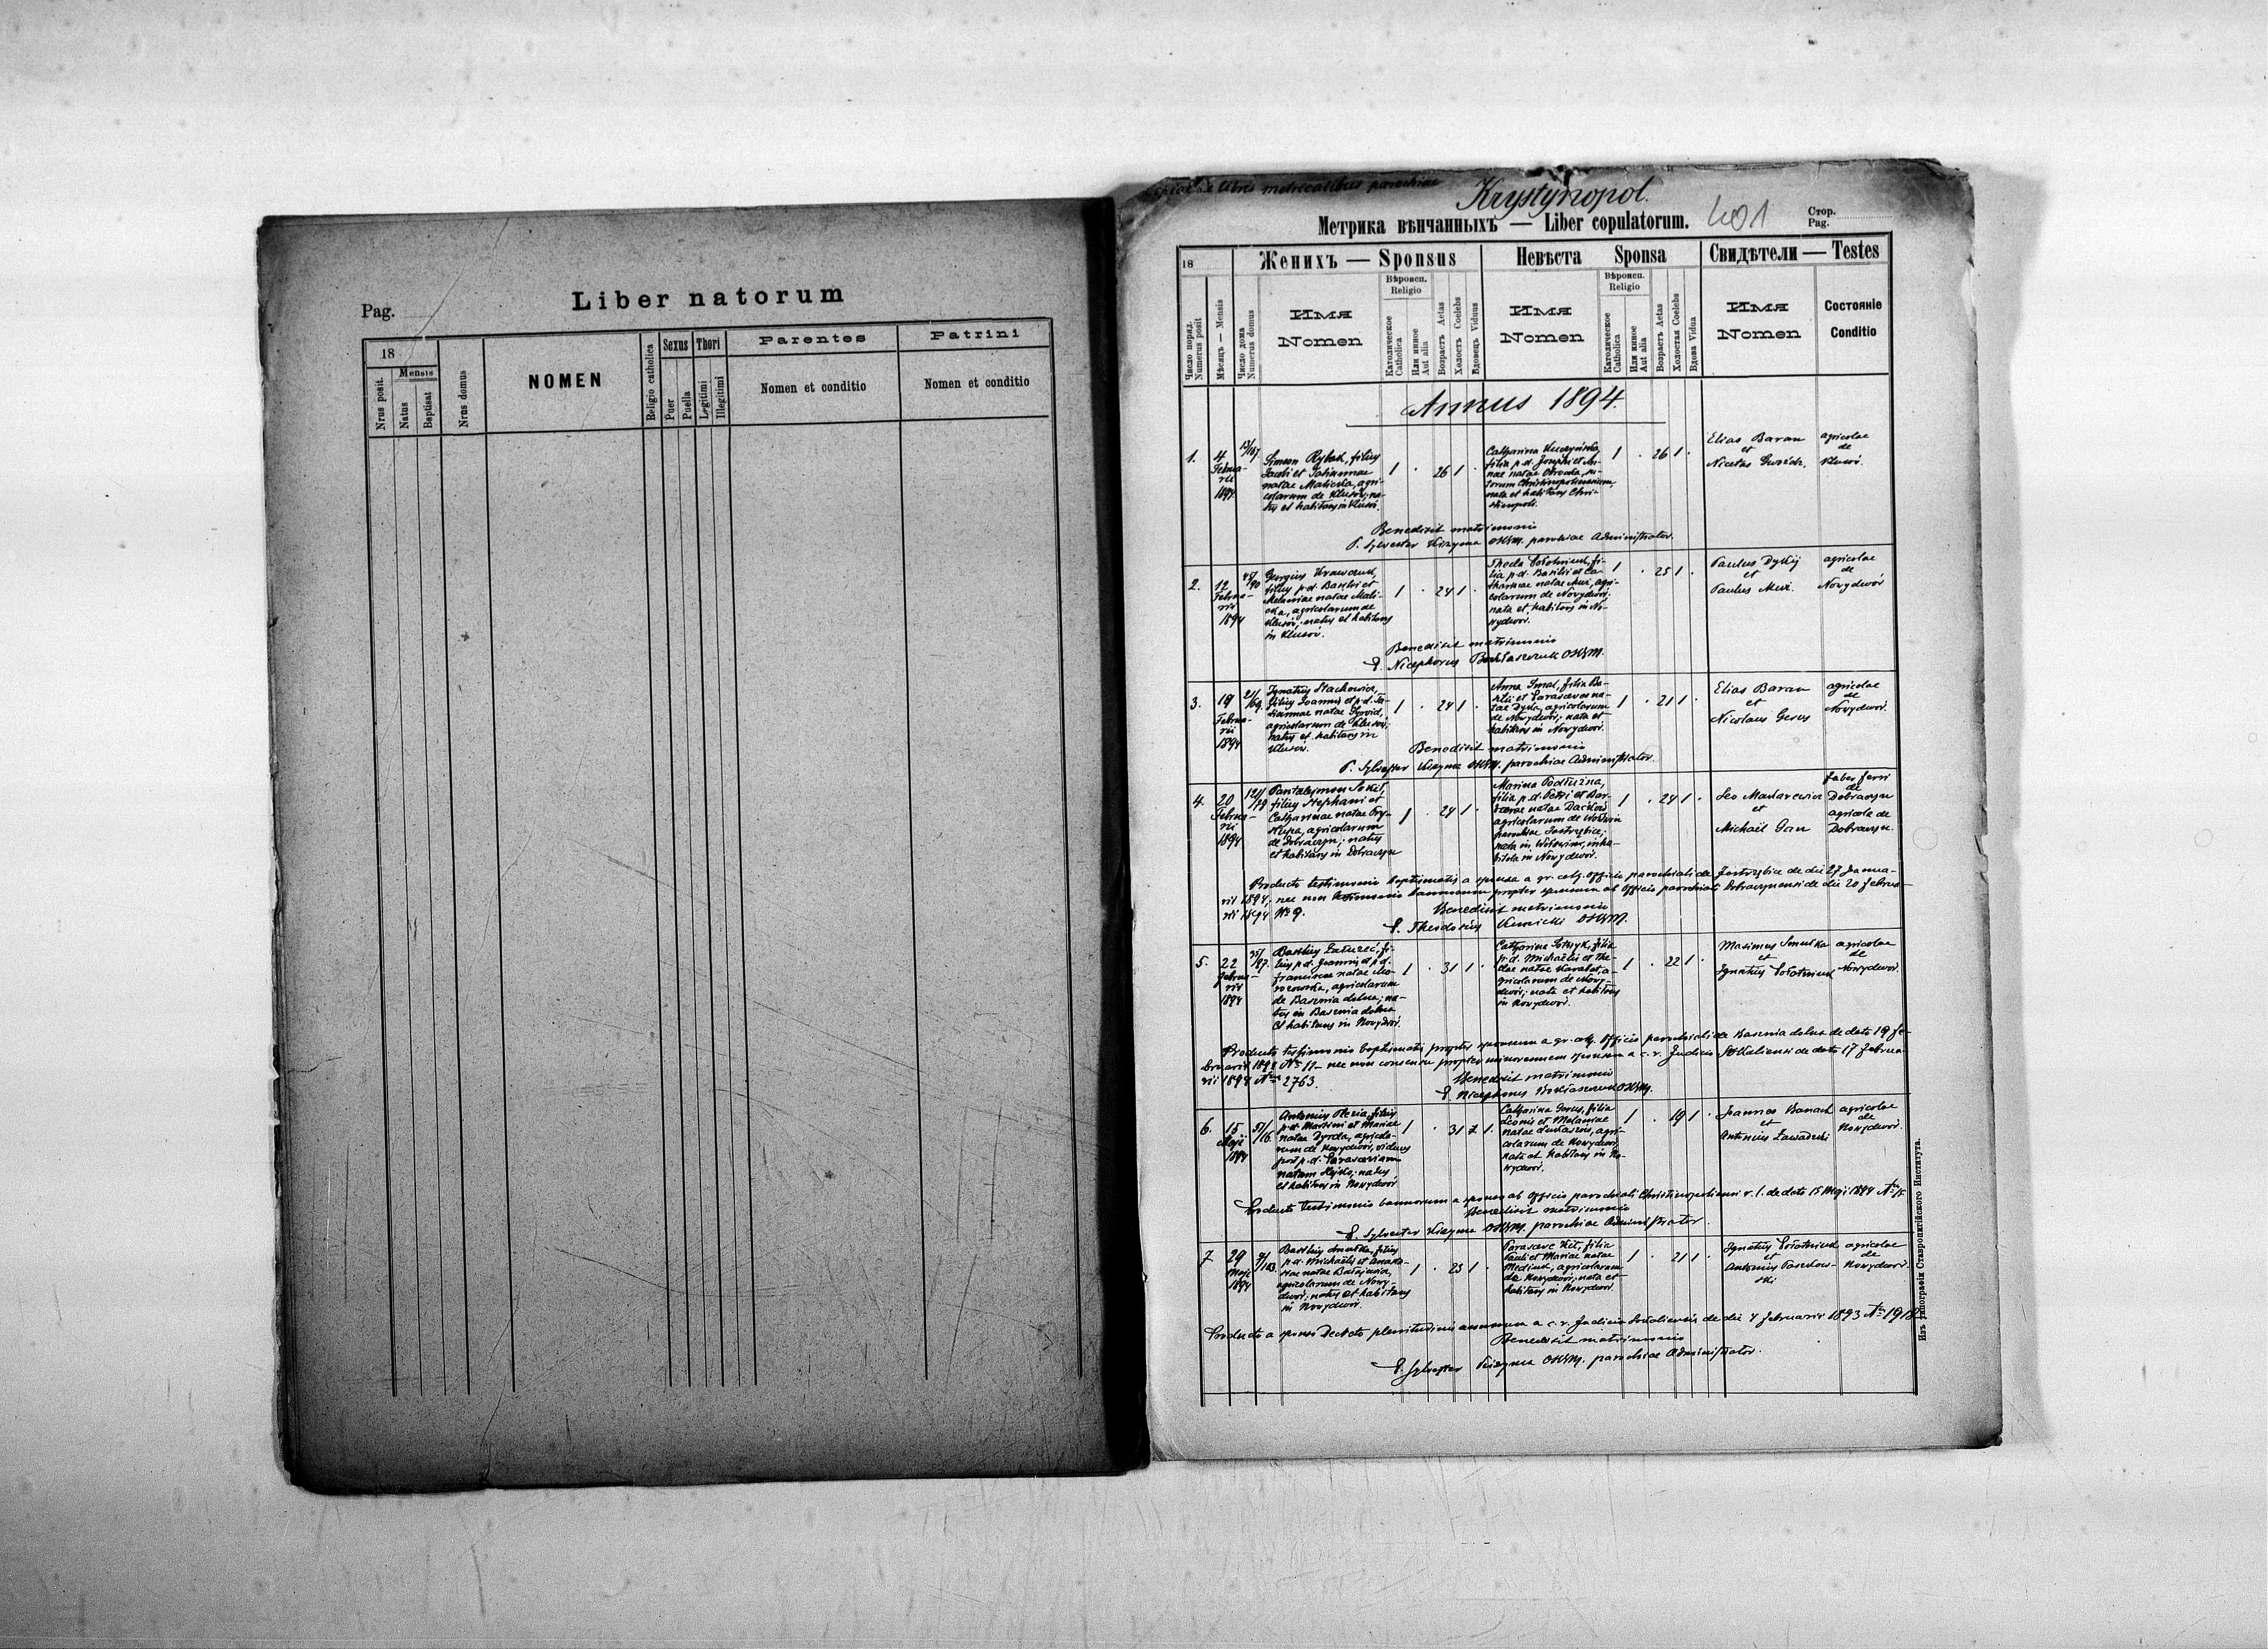 Pag.
Liber natorum
18
Mensis
Nrus posit.
Natus
Baptisat
Nrus domus
NOMEN
Religio catholica
Sexus
Puer
Puella
Thori
Legitimi
Illegitimi
Parentes
Nomen et conditio
Patrini
Nomen et conditio
libris metricalibus parochiae
Krystynopol.
Метрика вѣнчанныхъ — Liber copulatorum.
401
Стор.
Pag.
18
Женихъ — Sponsus
Невѣста Sponsa
Свидѣтели — Testes
Число поряд.
Numerus posit
Мѣсяцъ — Mensis
Число дома
Numerus domus
Имя
Nomen
Вѣроисп.
Religio
Католическое
Catholica
Или иное
Aut alia
Возрастъ Aetas
Холостъ Coelebs
Вдовецъ Viduus
Имя
Nomen
Вѣроисп.
Religio
Католическое
Catholica
Или иное
Aut alia
Возрастъ Aetas
Холостая Coelebs
Вдова Vidua
Имя
Nomen
Состояніе
Conditio
Annus 1894.
1.
4
Februa-
rii
1894
Simeon Rybak, filius
Jacobi et Tatiannae
natae Malicka, agri-
colarum de Klusov, na-
tus et habitans in Klusov.
1 . 26 1 .
Catharina
filia p.d. Josephi et An-
nae natae
nata et habitans Chri-
stinopoli.
1 . 26 1 .
Elias Baran
et
Nicetas
agricolae
de
Klusov.
Benedixit matrimonio
P. Sylvester Kizyma OSBM. parochiae Administrator.
2.
12
Februa-
rii
1894
45/90
Georgius Krawczuk,
filius p.d. Basilii et
Melaniae natae Mali-
cka, agricolarum de
Klusov; natus et habitans
in Klusov.
1 . 24 1 .
Thecla Sołotwiuk, fi-
lia p.d. Basilii et Ca-
tharinae natae agri-
colarum de Novydwor;
nata et habitans in No-
vydwor.
1 . 25 1 .
Paulus Dykij
et
Paulus
agricolae
de
Novydwor
Benedixit matrimonio
P. Nicephorus OSBM.
3.
19
Februa-
rii
1894
21/69.
Ignatius Stachowicz,
filius Joannis et p.d. Ta-
tiannae natae
agricolarum de Klusov;
natus et habitans in
Klusov.
1 . 24 1 .
Anna Smal, filia Ba-
silii et Parascevae na-
tae Dyda, agricolarum
de Novydwor; nata et
habitans in Novydwor.
1 . 21 1 .
Elias Baran
et
Nicolaus Gerus
agricolae
de
Novydwor.
Benedixit matrimonio
P. Sylvester Kizyma OSBM. parochiae Administrator.
4.
20
Februa-
rii
1894
121/19
Pantaleymon Sokił,
filius Stephani et
Catharinae natae Pry-
stupa, agricolarum
de Dobraczyn; natus
et habitans in Dobraczyn
1 . 24 1 .
Marina
filia p.d. Petri et Bar-
barae natae
agricolarum de
parochiae Jastrzębica;
nata in inha-
bitata in Novydwor.
1 . 24 1 .
Leo
et
Michaël Gau
faber ferri
de
Dobraczyn
agricola de
Dobraczyn.
Producto testimonio baptismatis a sponsa a gr. cath. officio parochiali de Jastrzębica de die 27 Janua-
rii 1894, nec non testimonio bannorum propter sponsum ab Officio parochiali Dobraczynensi de die 20 Februa-
rii 1894 No 9.
Benedixit matrimonio
P. Theodosius OSBM.
5.
22
Februa-
rii
1894
35/97.
Basilius fi-
lius p.d. Joannis et p.d.
Franciscae natae Mo-
rozowska, agricolarum
de Basznia dolna; na-
tus in Basznia dolna
et habitans in Novydwor.
1 . 31 1 .
Catharina Sotnyk, filia
p.d. Michaëlis et The-
clae natae Karabat, a-
gricolarum de Novy-
dwor; nata et habitans
in Novydwor.
1 . 22 1 .
Maximus Smutka
et
Ignatius Sołotwiuk
agricolae
de
Novydwor.
Producto testimonio baptismatis propter sponsum a gr. cath. Officio parochiali de Basznia dolna de dato 19 Fe-
bruarii 1894 No 11 nec non consensu propter minorennem sponsam a c. r. Judicio Sokaliensi de dato 17 Februa-
rii 1894 Nro 2763.
Benedixit matrimonio
P. Nicephorus OSBM.
6.
15
Maji
1894
51/16.
Antonius filius
p.d. Maximi et Mariae
natae Dyrda, agricola-
rum de Novydwor, viduus
post p.d. Parasceviam
natam natus
et habitans in Novydwor
1 . 31 . 1.
Catharina Gerus, filia
Leonis et Melaniae
natae agri-
colarum de Novydwor,
nata et habitans in No-
vydwor.
1 . 19 1 .
Joannes Banach
et
Antonius Zawadzki
agricolae
de
Novydwor.
Producto testimonio bannorum a sponso ab Officio parochiali Christinopoliensi r. l. de dato 15 Maji 1894 Nro 15
Benedixit matrimonio
P. Sylvester Kizyma OSBM. parochiae Administrator.
7
29
Maji
1894
Basilius Smutka, filius
p.d. Michaëlis et Anasta-
siae natae
agricolarum de Novy-
dwor; natus et habitans
in Novydwor.
1 . 23 1 .
Parasceve Kit, filia
Pauli et Mariae natae
Mediuch, agricolarum
de Novydwor; nata et
habitans in Novydwor.
1 . 21 1 .
Ignatius Sołotwiuk
et
Antonius Paszkow-
ski
agricolae
de
Novydwor.
Producto a sponso Decreto plenitudinis annorum a c. r. Judicio Sokaliensi de die 4 Februarii 1893 Nro 1918
Benedixit matrimonio
P. Sylvester Kizyma OSBM. parochiae Administrator.
Изъ типографіи Ставропигійского Института.